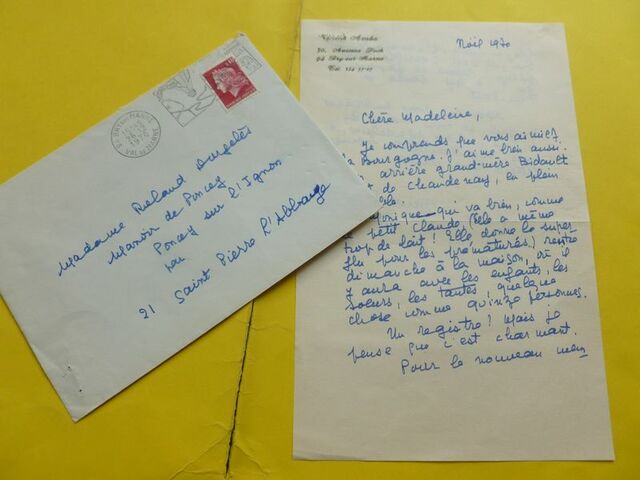 Madame Roland Dorgelès
Manoir de Poncey
Poncey sur l'Ignon
par
21 Saint Pierre l'Abbaye
BRY SUR MARNE
VAL DE MARNE
30, Avenue Foch
94 Bry-sur-Marne
Noël 1970
Chère Madeleine,
Je comprends que vous aimiez
la Bourgogne. J'ai me bien aussi.
arrière grand-mère Bidault
de Chaudenay, en plein
là.
Monique qui va bien, comme
petit Claude, (elle a même
trop de lait ! Elle donne le super
flu pour les prématurés) rentre
dimanche à la maison, où il
y aura avec les enfants, les
soeurs, les tantes, quelque
chose comme quinze personnes.
Un registre ! Mais je
pense que c'est charmant.
Pour le nouveau mem